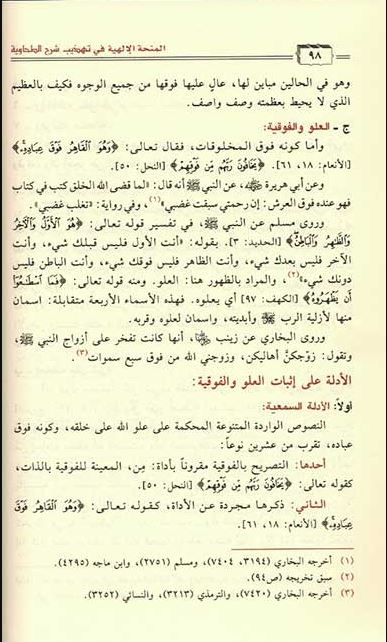 ٩٨
المنحة الإلهية في تهذيب شرح الطحاوية
وهو في الحالين مباين لها، عالٍ عليها فوقها من جميع الوجوه فكيف بالعظيم
الذي لا يحيط بعظمته وصف واصف.
ج - العلو والفوقية:
وأما كونه فوق المخلوقات، فقال تعالى: ﴿وَهُوَ الْقَاهِرُ فَوْقَ عِبَادِهِ﴾
[الأنعام: ١٨، ٦١]. ﴿يَخَافُونَ رَبَّهُم مِّن فَوْقِهِمْ﴾ [النحل: ٥٠].
وعن أبي هريرة ﵁، عن النبي ﷺ أنه قال: «لما قضى الله الخلق كتب في كتاب
فهو عنده فوق العرش: إن رحمتي سبقت غضبي»(١)، وفي رواية: «تغلب غضبي».
وروى مسلم عن النبي ﷺ، في تفسير قوله تعالى: ﴿هُوَ الْأَوَّلُ وَالْآخِرُ
وَالظَّاهِرُ وَالْبَاطِنُ﴾ [الحديد: ٣]. بقوله: «أنت الأول فليس قبلك شيء، وأنت
الآخر فليس بعدك شيء، وأنت الظاهر فليس فوقك شيء، وأنت الباطن فليس
دونك شيء»(٢)، والمراد بالظهور هنا: العلو. ومنه قوله تعالى: ﴿فَمَا اسْطَاعُوا
أَن يَظْهَرُوهُ﴾ [الكهف: ٩٧] أي يعلوه. فهذه الأسماء الأربعة متقابلة: اسمان
منها لأزلية الرب ﷾ وأبديته، واسمان لعلوه وقربه.
وروى البخاري عن زينب ﵂، أنها كانت تفخر على أزواج النبي ﷺ،
وتقول: زوجكنَّ أهاليكن، وزوجني الله من فوق سبع سموات(٣).
الأدلة على إثبات العلو والفوقية:
أولاً: الأدلة السمعية:
النصوص الواردة المتنوعة المحكمة على علو الله على خلقه، وكونه فوق
عباده، تقرب من عشرين نوعاً:
أحدها: التصريح بالفوقية مقروناً بأداة: مِن، المعينة للفوقية بالذات،
كقوله تعالى: ﴿يَخَافُونَ رَبَّهُم مِّن فَوْقِهِمْ﴾ [النحل: ٥٠].
الثاني: ذكرها مجردة عن الأداة، كقوله تعالى: ﴿وَهُوَ الْقَاهِرُ فَوْقَ
عِبَادِهِ﴾ [الأنعام: ١٨، ٦١].
(١) أخرجه البخاري (٣١٩٤، ٧٤٠٤)، ومسلم (٢٧٥١)، وابن ماجه (٤٢٩٥).
(٢) سبق تخريجه (ص٩٤).
(٣) أخرجه البخاري (٧٤٢٠)، والترمذي (٣٢١٣)، والنسائي (٣٢٥٢).